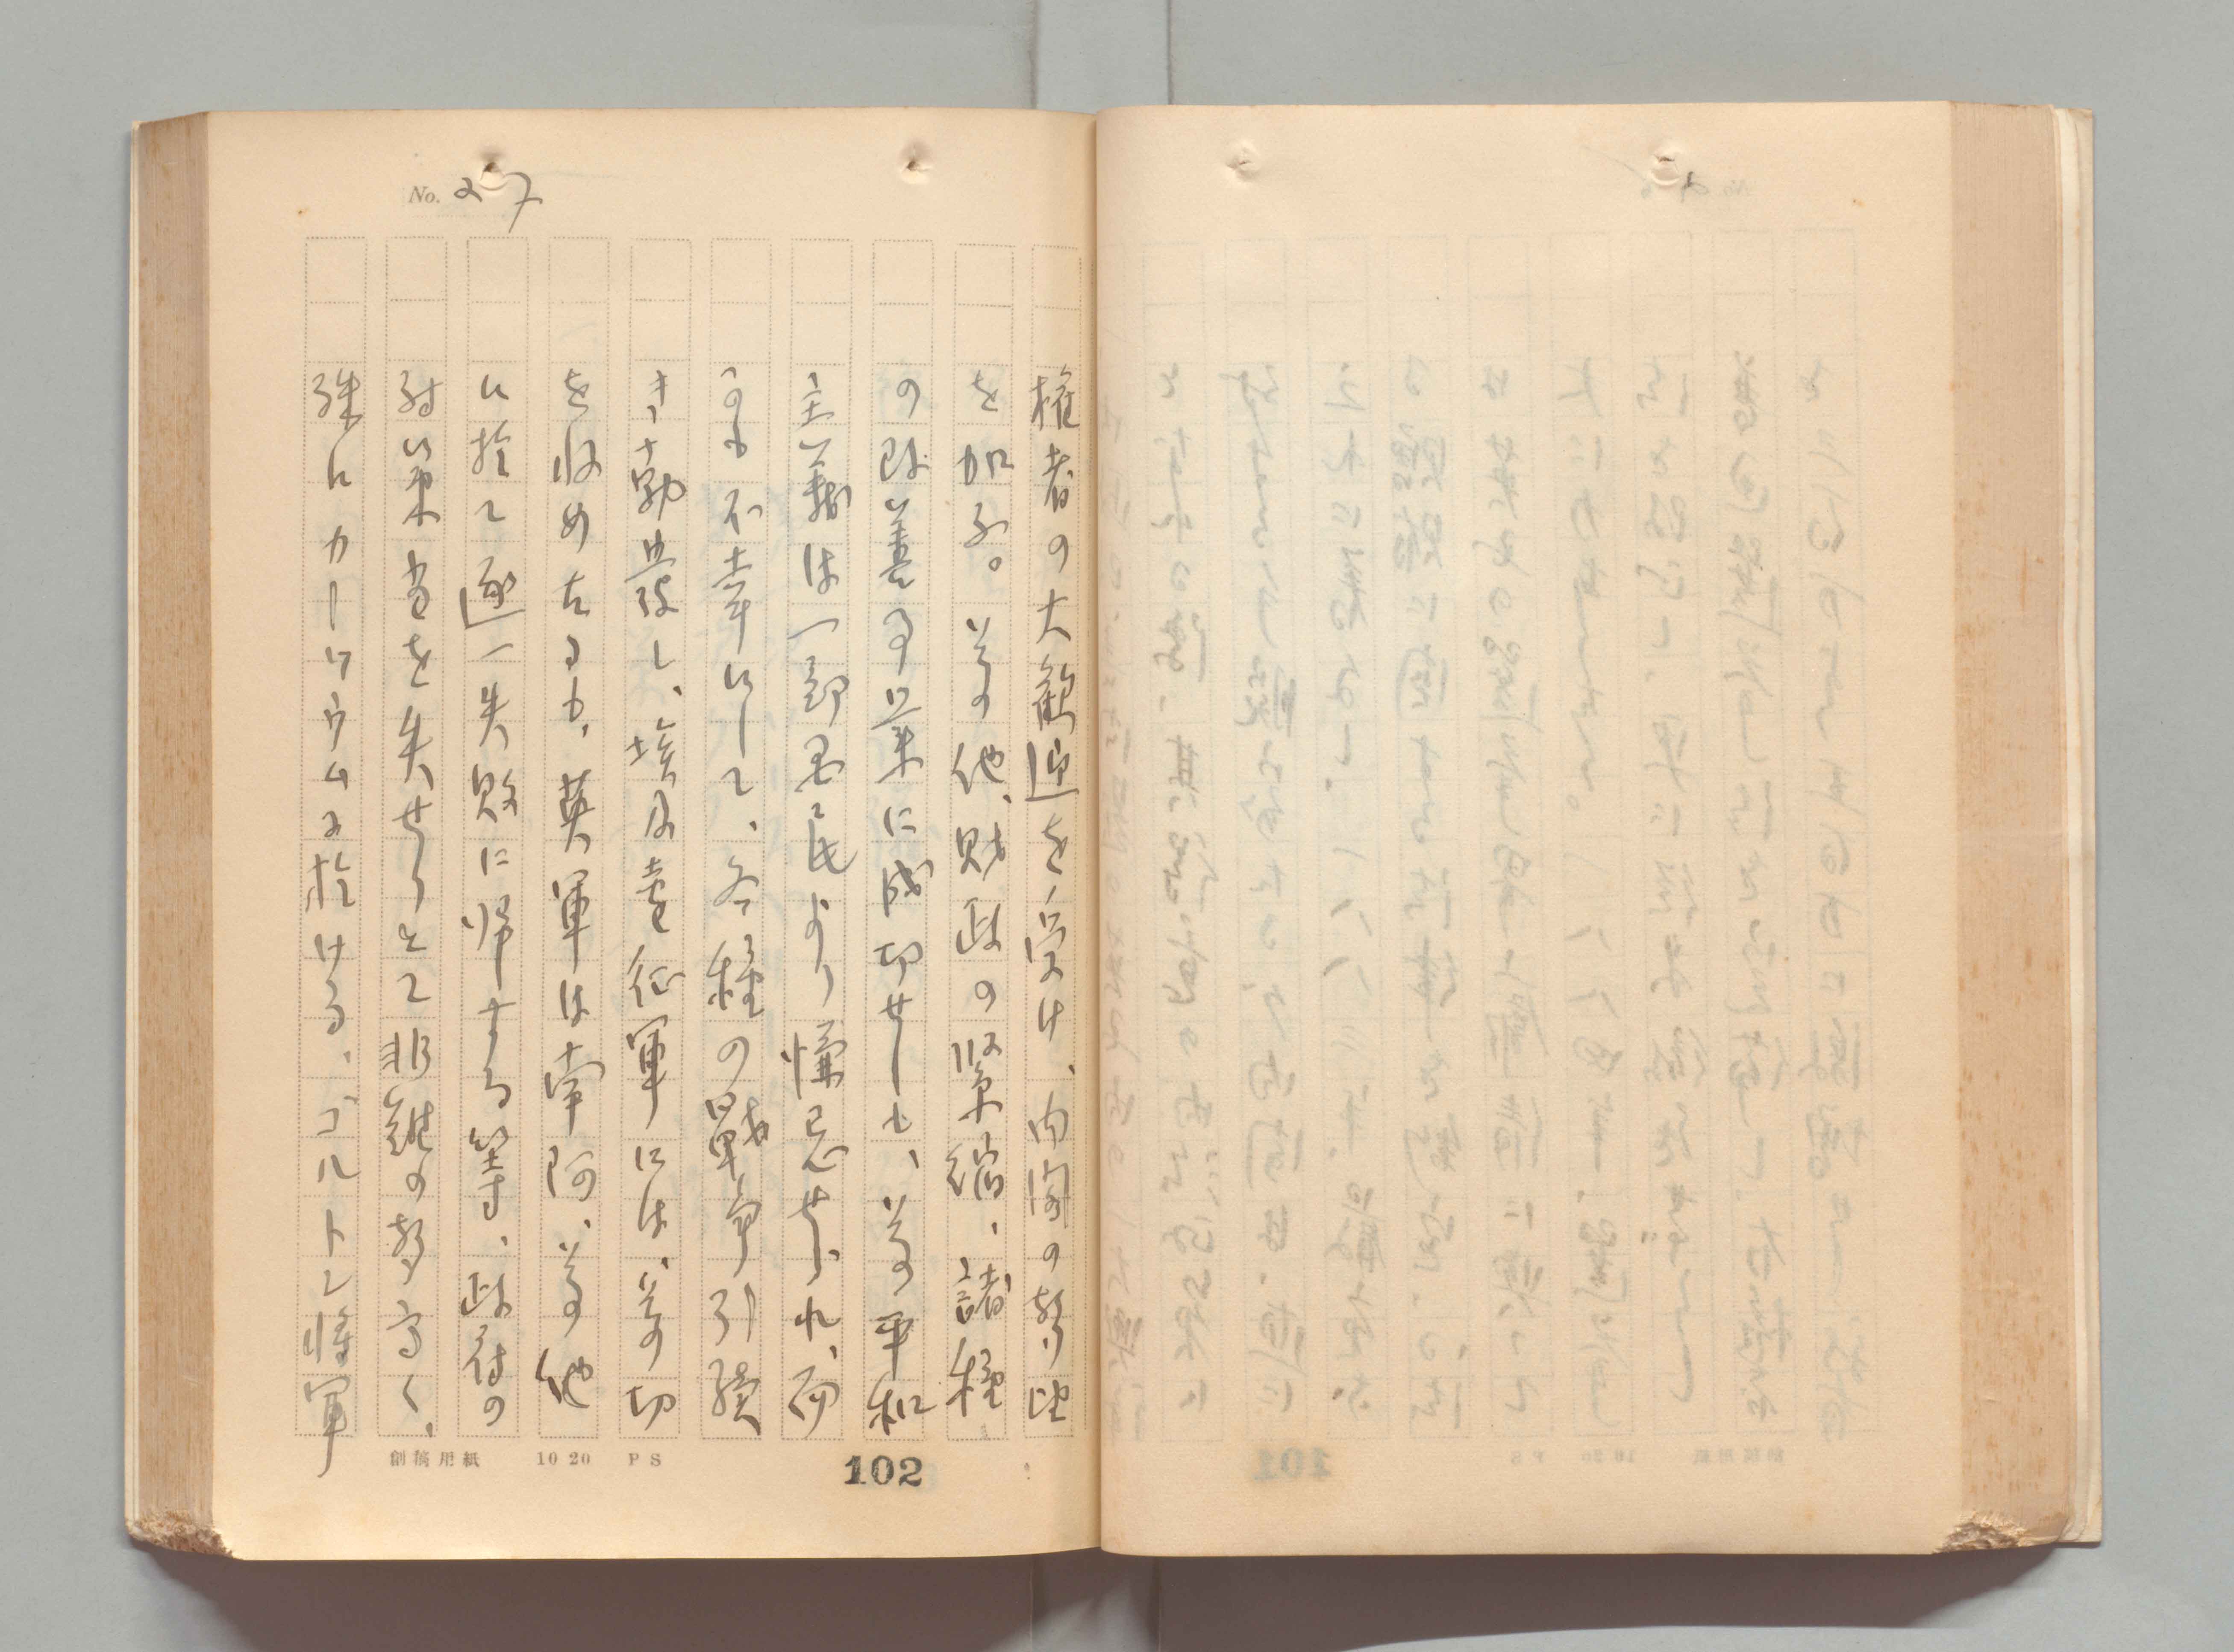 No. 27
権者の大歓迎を受け、内閣の勢望
を加ふ。其の他、財政の緊縮、諸種
の改善事業に成功せしも、其の平和
主義は一部国民より慊忌せられ、而
かも不幸にして、各種の戦争引続
き勃発し、埃及遠征軍には、其の功
を収めたるも、英軍は南阿、其の他
に於て逐一失敗に帰する等、政府の
対策当を失せりとて非難の声高く、
殊にカーツウムに於ける、ゴルトン将軍
創稿用紙 10 20 PS
102